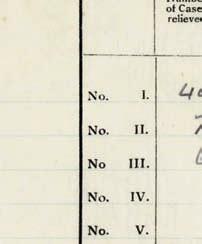 of Case
relieve
No. I.
No. II.
No III.
No. IV.
No. V.